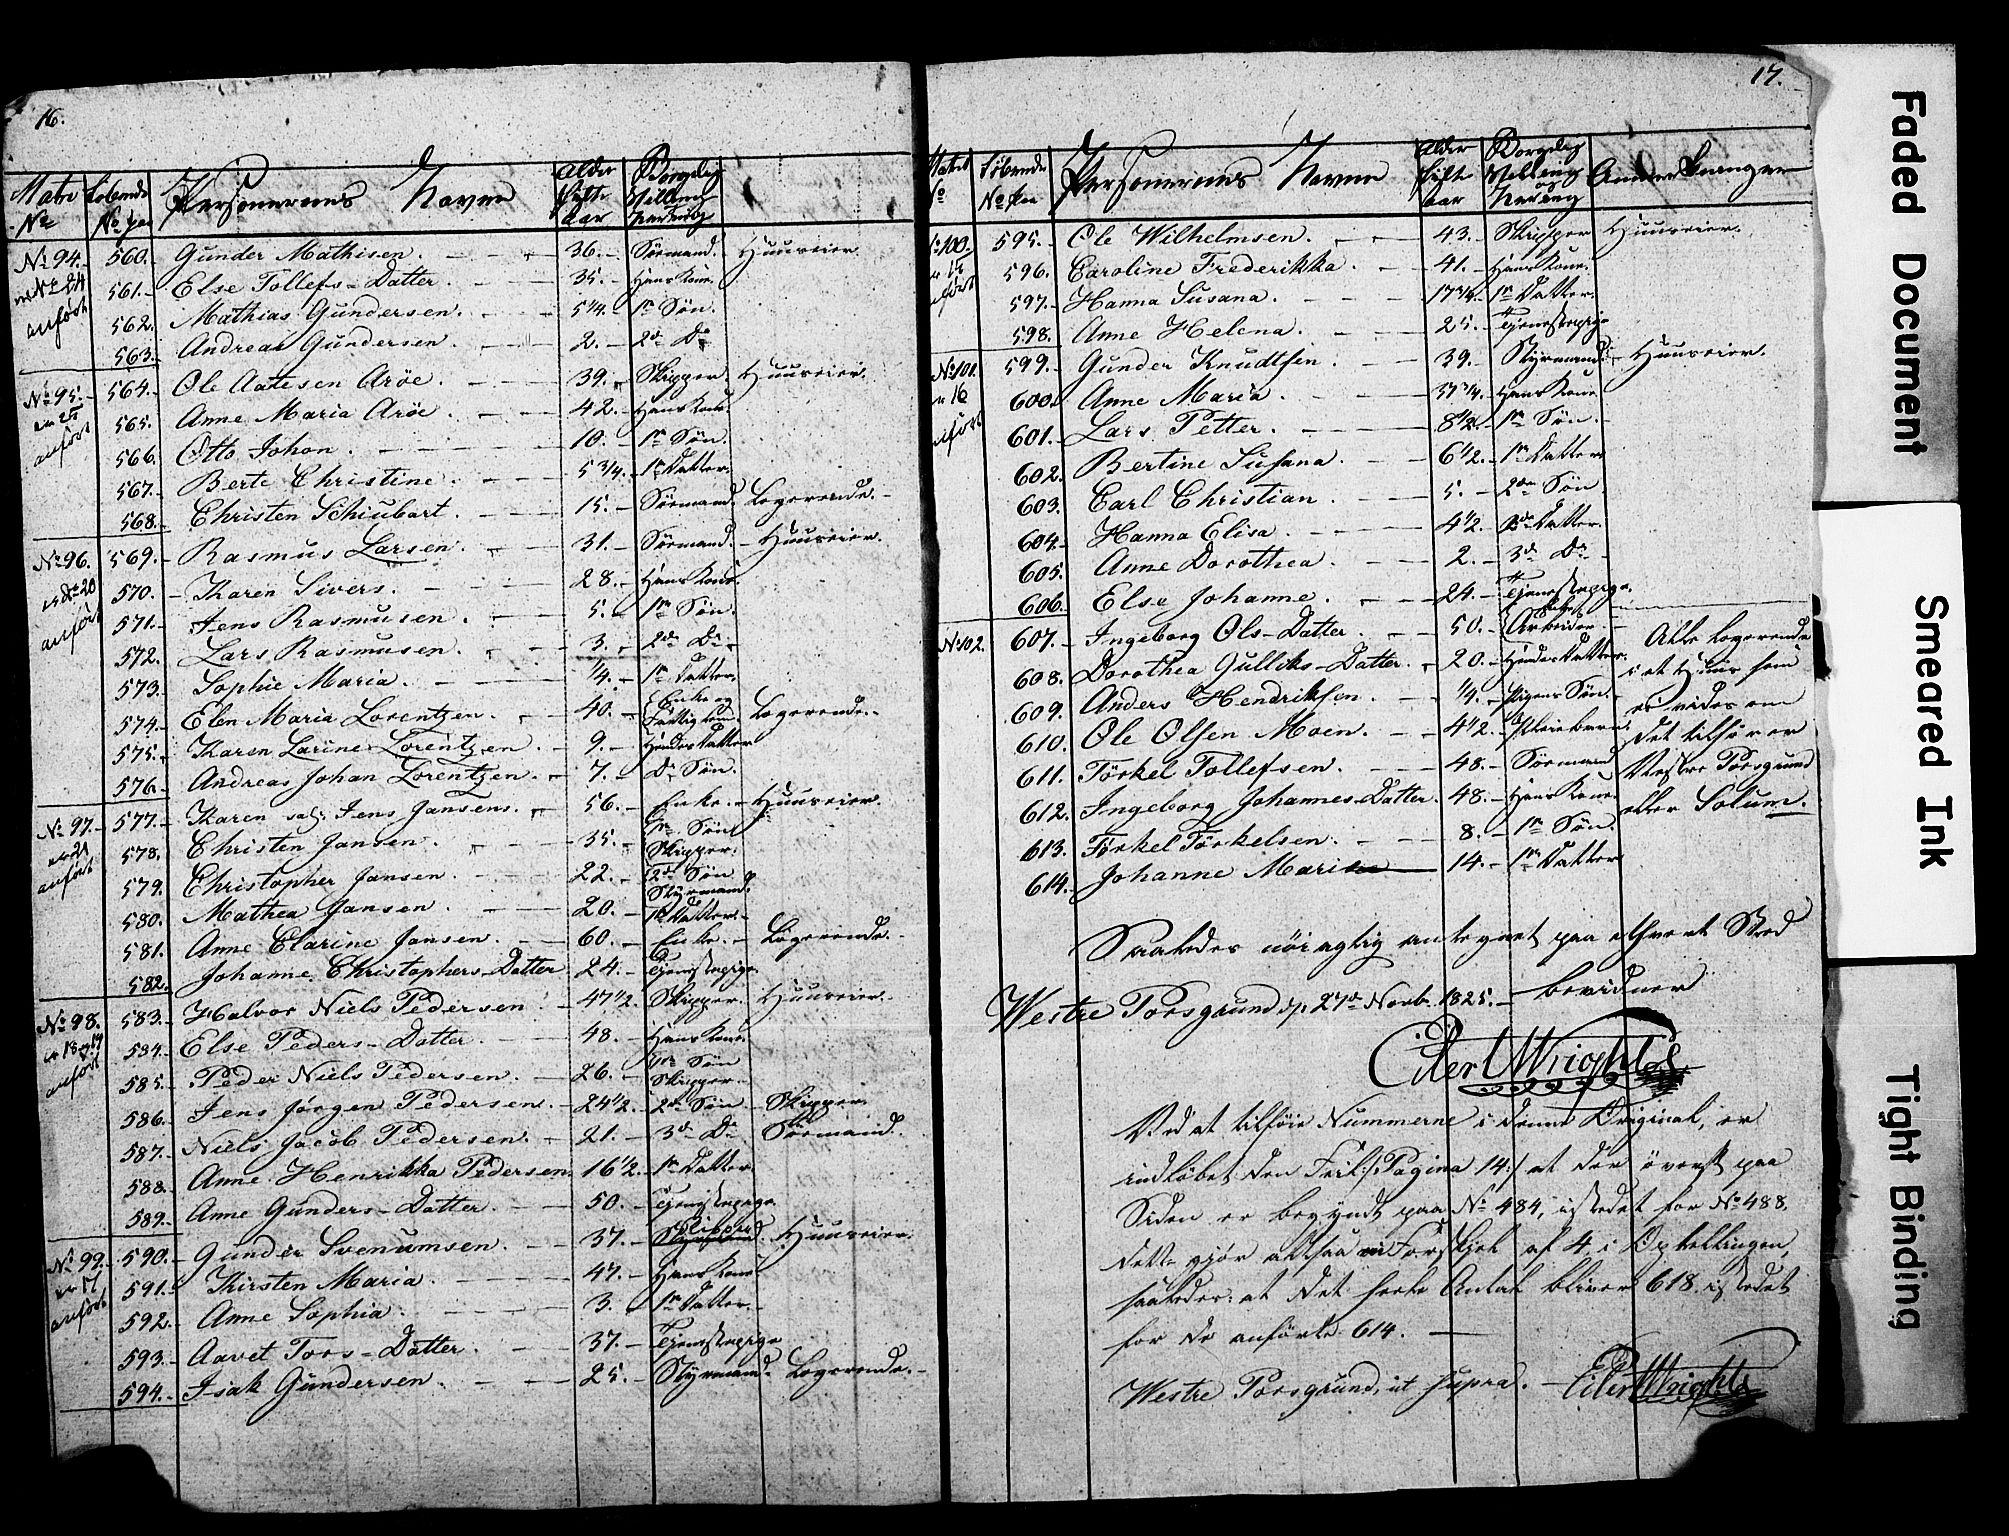 16.
Matr No Løbende No paa Personernes Navne Alder Fulte Aar Borgelig Stilling
No 94. 560. Gunder Mathisen. 36. Sömand. Huuseier.
No 24 561. Else Tollefs-Datter. 35. Hans Kone.
anført 562. Mathias Gundersen. 5 1/4. 1e Søn.
563. Andreas Gundersen 2. 2de Do
No 95. 564. Ole Aatesen Aröe. 39. Skipper. Huuseier.
25 565. Anne Maria Aröe. 42. Hans Kone.
anført 566. Otto Johan. 10. 1e Søn.
567. Berte Christine. 5 3/4. 1e Datter.
568. Christen Schiubart. 15. Sömand. Logerende.
No 96. 569. Rasmus Larsen. 31. Sömand. Huuseier.
20 570. Karen Sivers. 28. Hans Kone.
anført 571. Jens Rasmusen. 5. 1e Søn.
572. Lars Rasmusen. 3. 2de Do
573. Sophie Maria. 1/4. 1e Datter.
574. Elen Maria Lorentzen. 40. Enke og Fattiglem. Logerende.
575. Karen Larine Lorentzen. 9. Hendes Datter
576. Andreas Johan Lorentzen. 7. Do Søn.
No 97. 577. Karen sal. Jens Jansens. 56. Enke. Huuseier.
21 578. Christen Jansen. 35. 1e Søn Skipper.
anført 579. Christopher Jansen. 22. 2de Søn Styrmand.
580. Mathea Jansen. 20. 1e Datter.
581. Anne Clarine Jansen. 60. Enke. Logerende.
582. Johanne Christophers-Datter 24. Tjenestepige.
No 98. 583. Halvor Niels Pedersen. 47 1/2. Skipper. Huuseier.
18 og 19 584. Else Peders-Datter. 48. Hans Kone.
anført 585. Peder Niels Pedersen. 26. 1e Søn Skipper.
586. Jens Jörgen Pedersen. 24 1/2. 2de Søn Skipper.
587. Niels Jacob Pedersen. 21. 3de Do Sömand.
588. Anne Henrikka Pedersen. 16 1/2. 1e Datter.
589. Anne Gunders-Datter. 50. Tjenestepige.
No 99. 590. Gunder Svenumsen. 37. Skipper. Huuseier.
17 591. Kirsten Maria. 47. Hans Kone.
anført 592. Anne Sophia. 3. 1e Datter.
593. Aavet Tors-Datter. 37. Tjenestepige.
594. Isak Gundersen. 25. Styrmand. Logerende.
17.
Matr No Løbende No paa Personernes Navne Alder Fulte Aar Borgelig Stilling og Næring Anmærkninger
No 100. 595. Ole Wilhelmsen. 43. Skipper Huuseier.
15 596. Caroline Frederikka. 41. Hans Kone.
anført 597. Hanna Susana. 17 3/4. 1e Datter.
598. Anne Helena. 25. Tjenestepige
No 101. 599. Gunder Knudtsen. 39. Styrmand. Huuseier.
16 600. Anne Maria. 37 3/4. Hans Kone
anført 601. Lars Petter. 8 1/2. 1e Søn.
602. Bertine Susana. 6 1/2. 1e Datter.
603. Carl Christian 5. 2den Søn
604. Hanna Elisa. 4 1/2. 2de Datter.
605. Anne Dorothea. 2. 3de Do
606. Else Johanne. 24. Tjenestepige.
No 102. 607. Ingeborg Ols-Datter. 50. Arbeider. Alle Logerende
608. Dorothea Gulliks-Datter. 20. Hendes Datter. i et Huus som
609. Anders Hendriksen. 1/4. Pigens Søn.
610. Ole Olsen Moen. 4 1/2. Pleiebarn. det tilhører
611. Törkel Tollefsen. 48. Sömand Westre Porsgrund
612. Ingeborg Johannes-Datter. 48. Hans Kone. eller Solum.
613. Törkel Törkelsen. 8. 1e Søn.
614. Johanne Marie 14. 1e Datter
Saaledes nöiagtig antegnet paa ethvert Sted
bevidner
Westre Porsgrund, 27de Novb. 1825.
Eiler Wright
Ved at tilföie Nummerne i denne Original, er
indløbet den Feil /: Pagina 14 :/ at der øverst paa
Siden er begyndt paa No 484, istedet for No 488,
dette gjör altsaa en Forskjel af 4, i Optellingen,
saaledes: at det heele Antal bliver 618. istedet
for de anförte 614.
Westre Porsgrund, ut supra.
Eiler Wright
Faded Document
Smeared Ink
Tight Binding